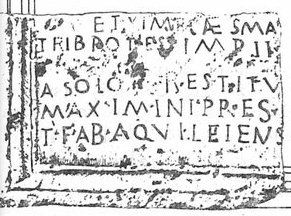 ET · V · IM · P · CAES MA
TRIB POTES IMP II
A SOLO RESTITV
MAXIMINI · PR · ES ·
T · FAB · AQVILEIENS